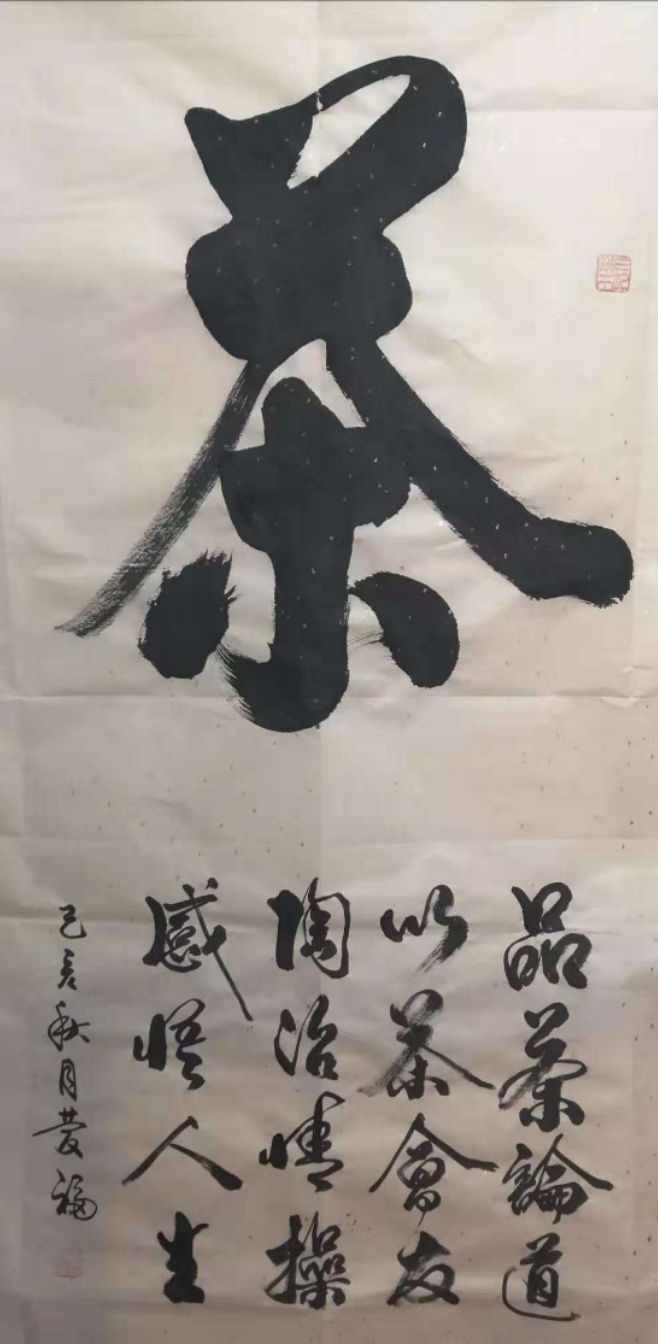 茶
品茶論道
以茶會友
陶冶情操
感悟人生
己亥秋月